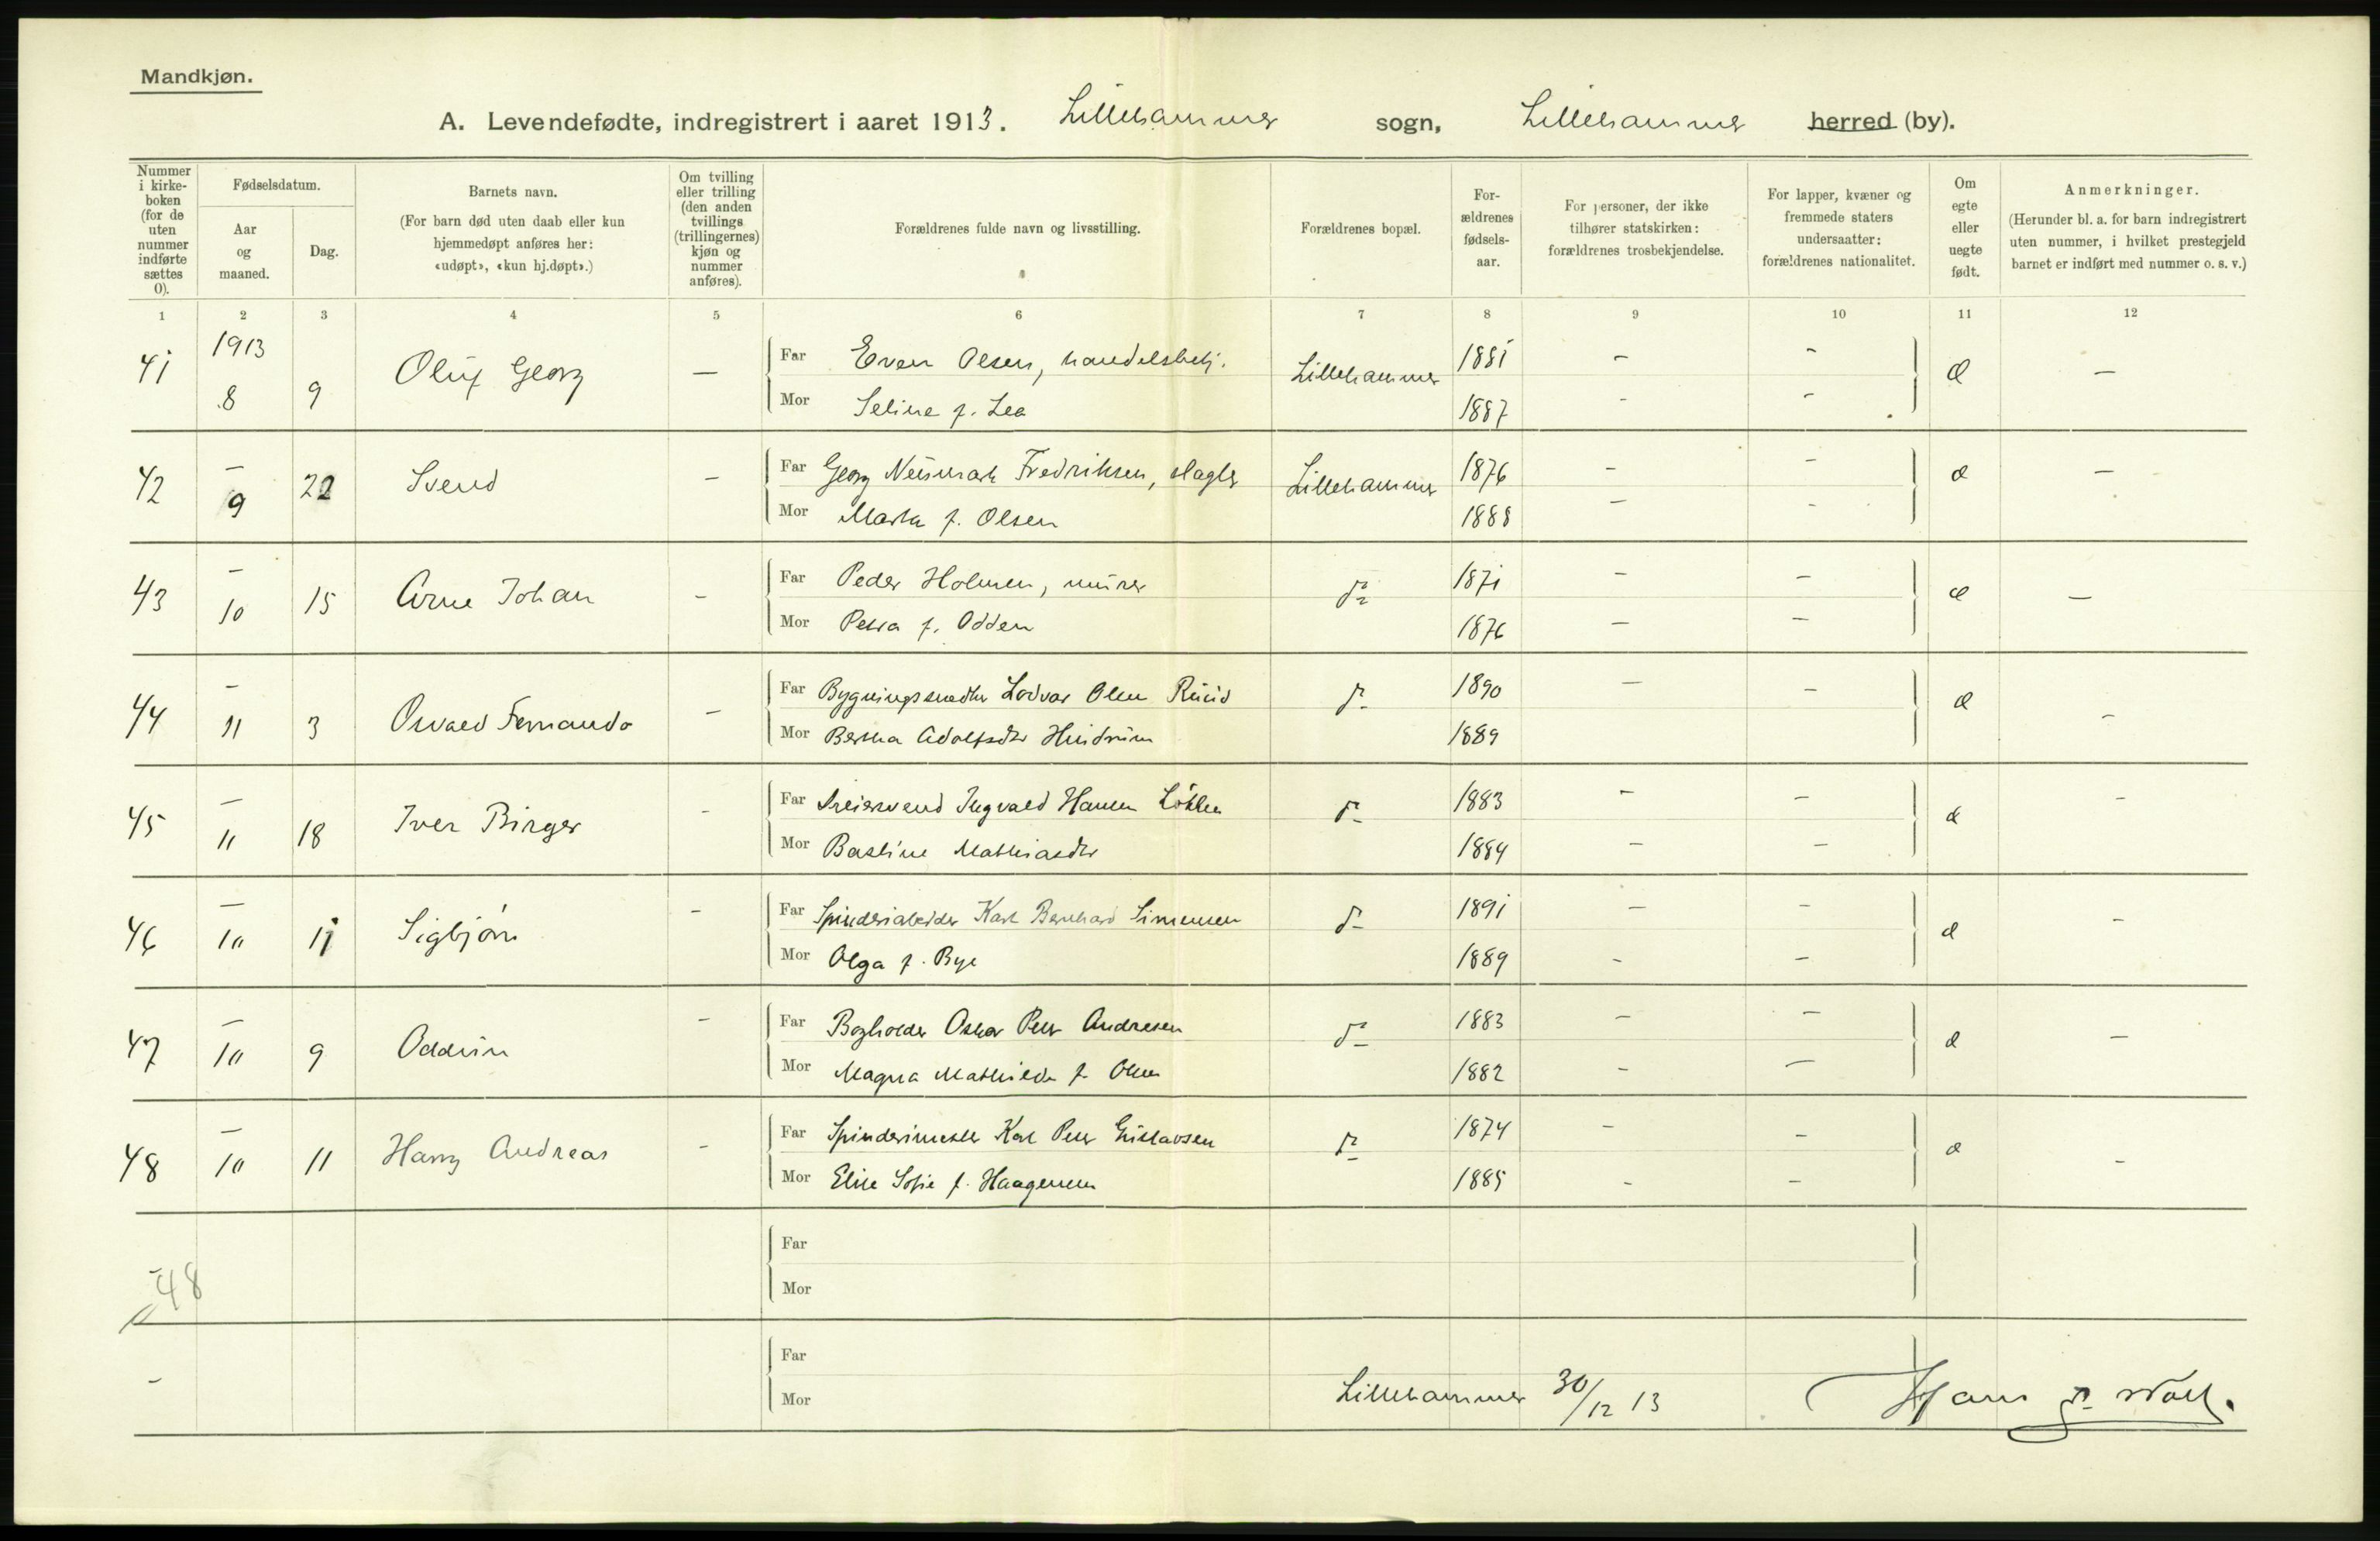 Mandkjøn.
A. Levendefødte, indregistrert i aaret 1913. Lillehammer sogn, Lillehammer herred (by).
Nummer i kirke-boken (for de uten nummer indførte sættes 0).
Fødselsdatum.
Aar og maaned.
Dag.
Barnets navn.
(For barn død uten daab eller kun hjemmedøpt anføres her: «udøpt», «kun hj.døpt».)
Om tvilling eller trilling (den anden tvillings (trillingernes) kjøn og nummer anføres).
Forældrenes fulde navn og livsstilling.
Forældrenes bopæl.
For-ældrenes fødsels-aar.
For personer, der ikke tilhører statskirken: forældrenes trosbekjendelse.
For lapper, kvæner og fremmede staters undersaatter: forældrenes nationalitet.
Om egte eller uegte født.
Anmerkninger.
(Herunder bl. a. for barn indregistrert uten nummer, i hvilket prestegjeld barnet er indført med nummer o. s. v.)
1 2 3 4 5 6 7 8 9 10 11 12
41 1913 8 9 Oluf Georg — Far Even Olsen, handelsbetj. Lillehammer 1881 - - —
Mor Seline f. Lea 1887 - -
42 — 9 22 Svend - Far Georg Neumark Fredriksen, slagter Lillehammer 1876 - - —
Mor Marta f. Olsen 1888 - -
43 — 10 15 Arne Johan - Far Peder Holmen, murer do 1871 - - —
Mor Petra f. Odden 1876 - -
44 - 11 3 Osvald Fernando - Far Bygningssnedker Lodvar Olsen Ruud do 1890 - - -
Mor Bertha Adolfsdtr 1889
45 — 11 18 Iver Birger - Far Dreiersvend Ingvald Hansen Løkken do 1883 - - -
Mor Basline Mathiasdtr 1884 - -
46 — 10 11 Sigbjørn - Far Spinderiarbeider Karl Bernhard Simensen do 1891 - - -
Mor Olga f. Bye 1889 - -
47 — 10 9 Oddvin - Far Bogholder Oskar Peter Andresen do 1883 - - —
Mor Magna Mathilde f. Olsen 1882 - —
48 — 10 11 Harry Andreas - Far Spinderimester Karl Peter Gustavsen do 1874 - - -
Mor Elise Sofie f. Haagensen 1885 - -
48 Far
Mor
- Far
Mor Lillehammer 30/12 13 Hans